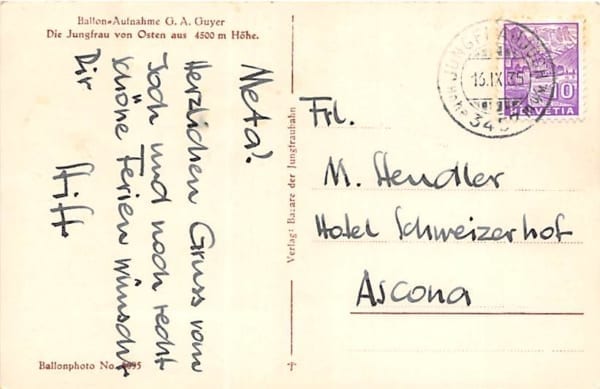 Ballon-Aufnahme G. A. Guyer
Die Jungfrau von Osten aus 4500 m Höhe.
Meta!
Herzlichen Gruss vom
Joch und noch recht
schöne Ferien wünscht
Dir
Ballonphoto No.
Verlag: Bazare der Jungfraubahn
JUNGFRAUJOCH
16.IX.35
HELVETIA
10
Frl.
M. Hendler
Hotel Schweizerhof
Ascona